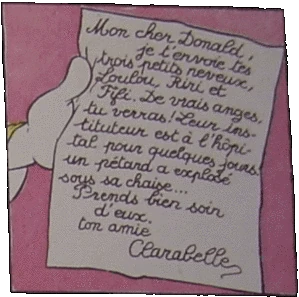 Mon cher Donald,
je t'envoie tes
trois petits neveux,
Loulou, Riri et
Fifi. De vrais anges,
tu verras! Leur ins-
tituteur est à l'hôpi-
tal pour quelques jours:
un pétard a explosé
sous sa chaise...
Prends bien soin
d'eux.
ton amie
Clarabelle